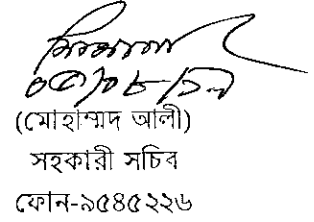 (মোহাম্মদ আলী)
সহকারী সচিব
ফোন-৯৫৪৫২২৬